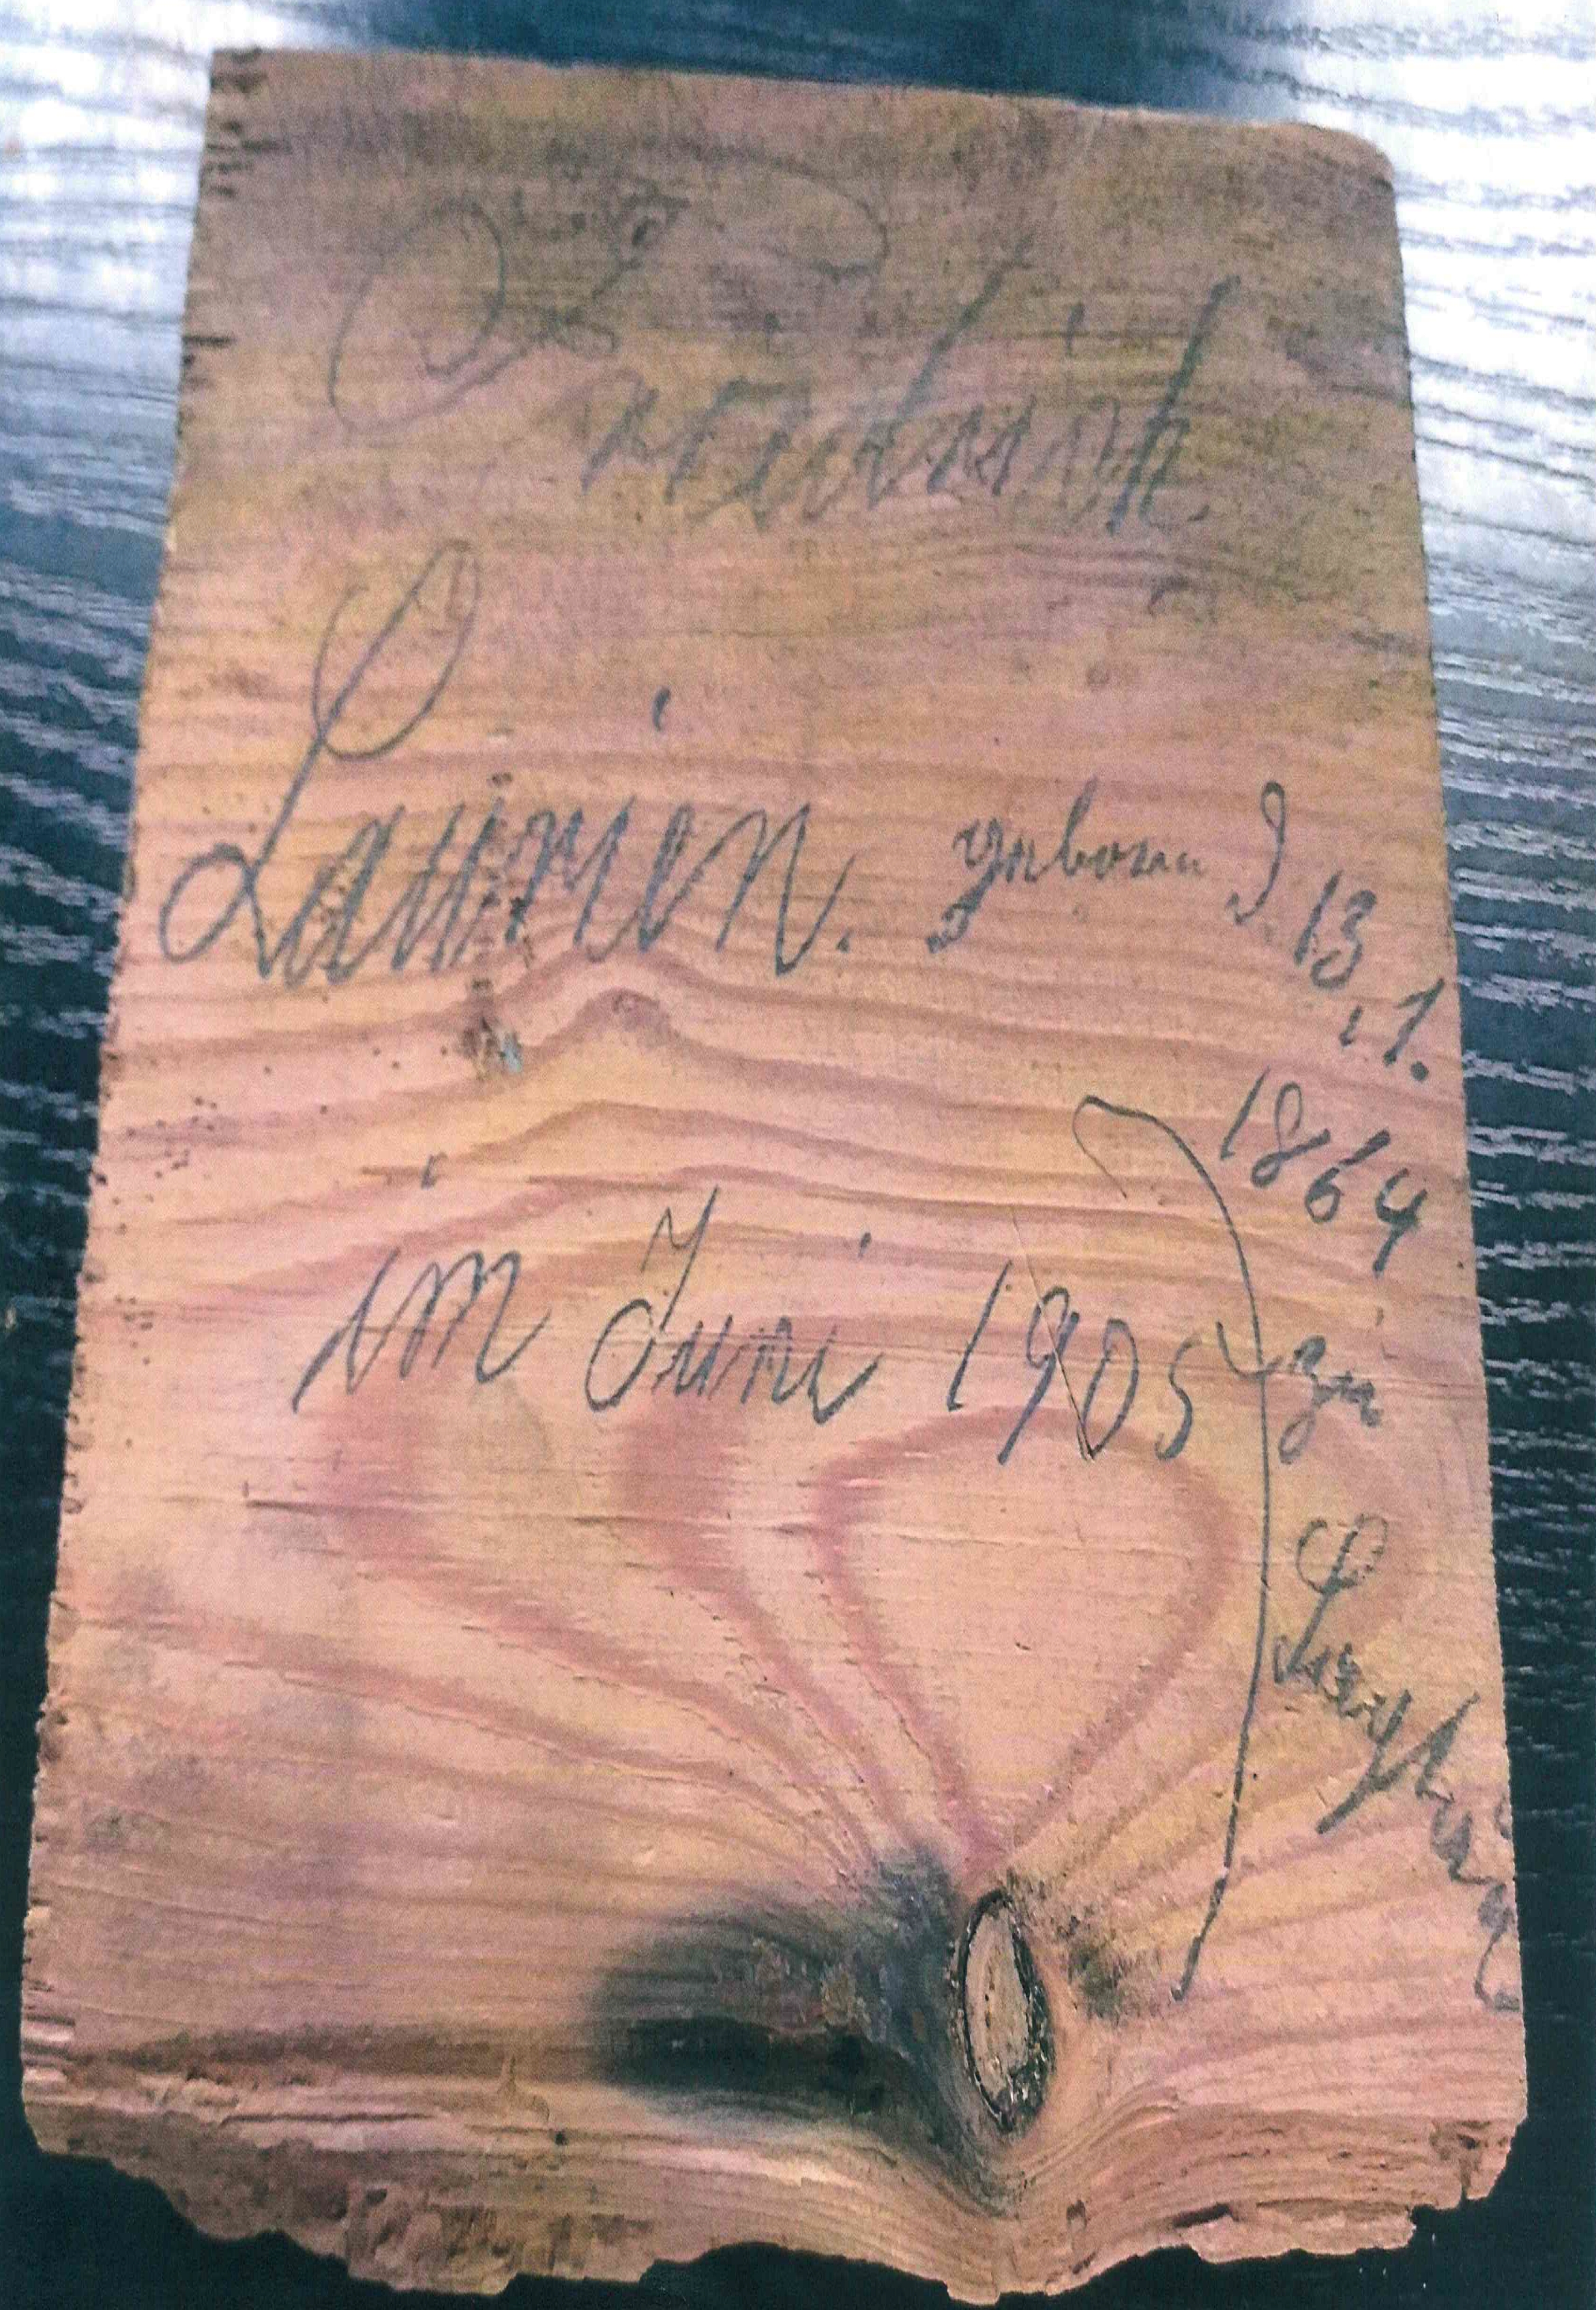 Friedrich
Laurien. geboren d. 13.
1.
1864
im Juni 1905 zu